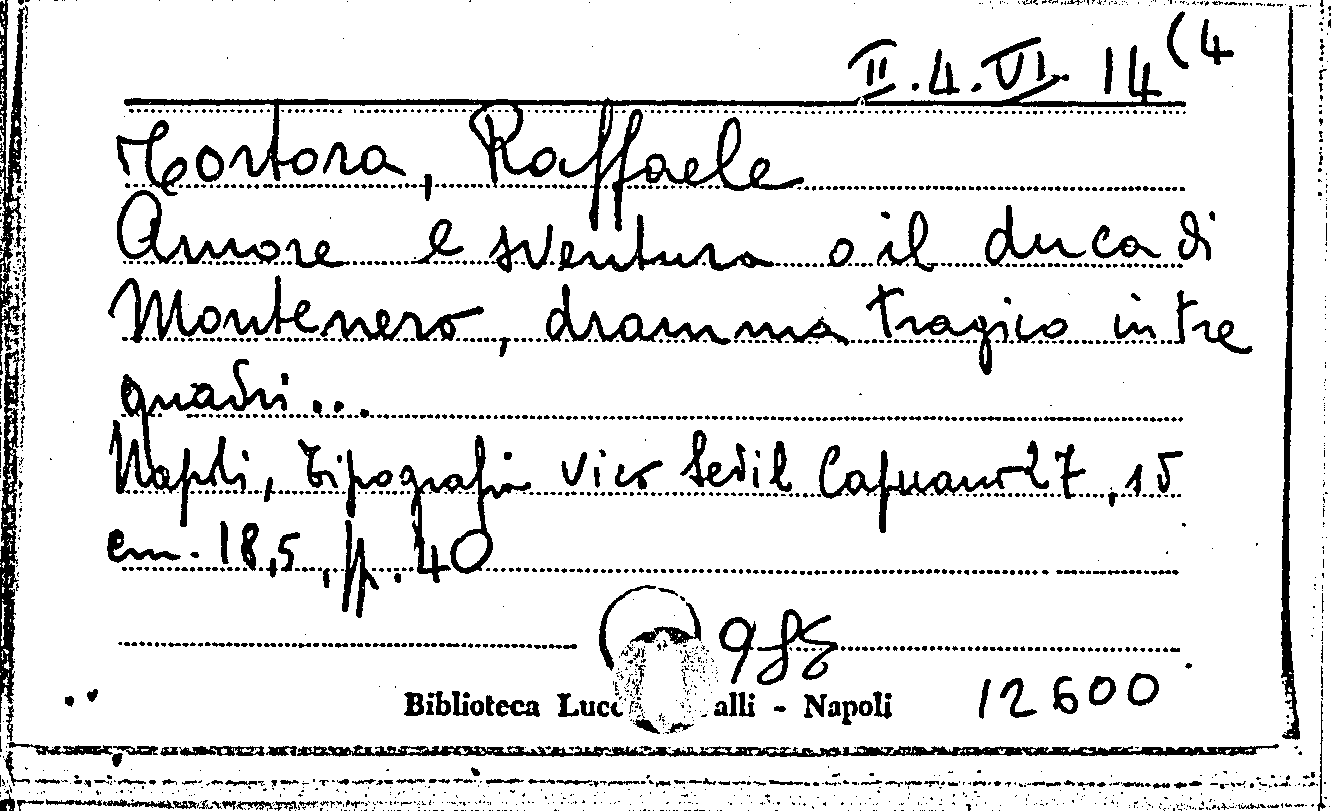 II.4.VI. 14 (4
Tortora, Raffaele
Amore e sventura o il duca di
Montenero, dramma tragico in tre
quadri...
Napoli, Tipografia Vico Sedil Capuano 27, 15
cm. 18,5, pp. 40
12600
Biblioteca Lucc alli - Napoli